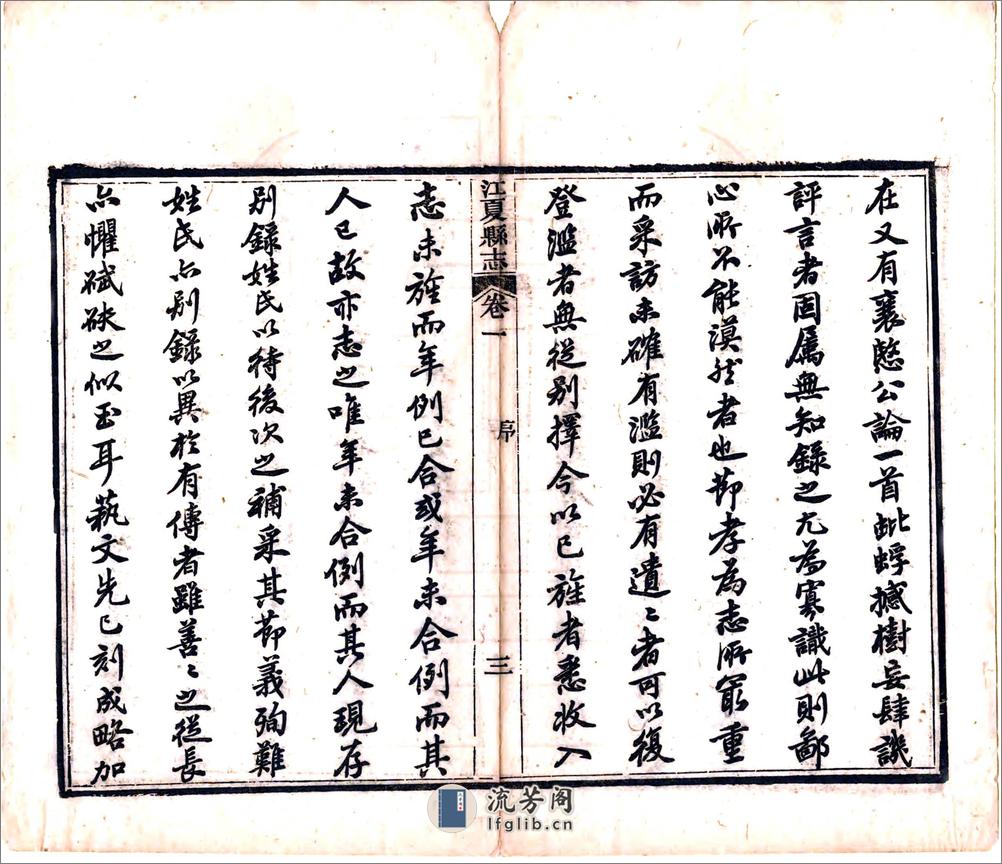 在又有襄愍公論一首蚍蜉撼樹妄肆譏
評言者固屬無知錄之尤為寡識此則鄙
心所不能漠然者也節孝為志所最重
而采訪未確有濫則必有遺〻者可以復
登濫者無從別擇今以已旌者悉收入
江夏縣志 卷一 序 三
志未旌而年例已合或年未合例而其
人已故亦志之唯年未合例而其人現存
別錄姓氏以待後次之補采其節義殉難
姓氏亦別錄以異於有傳者雖善〻之從長
亦懼碔砆之似玉耳藝文先已刻成略加
流芳阁
lfglib.cn